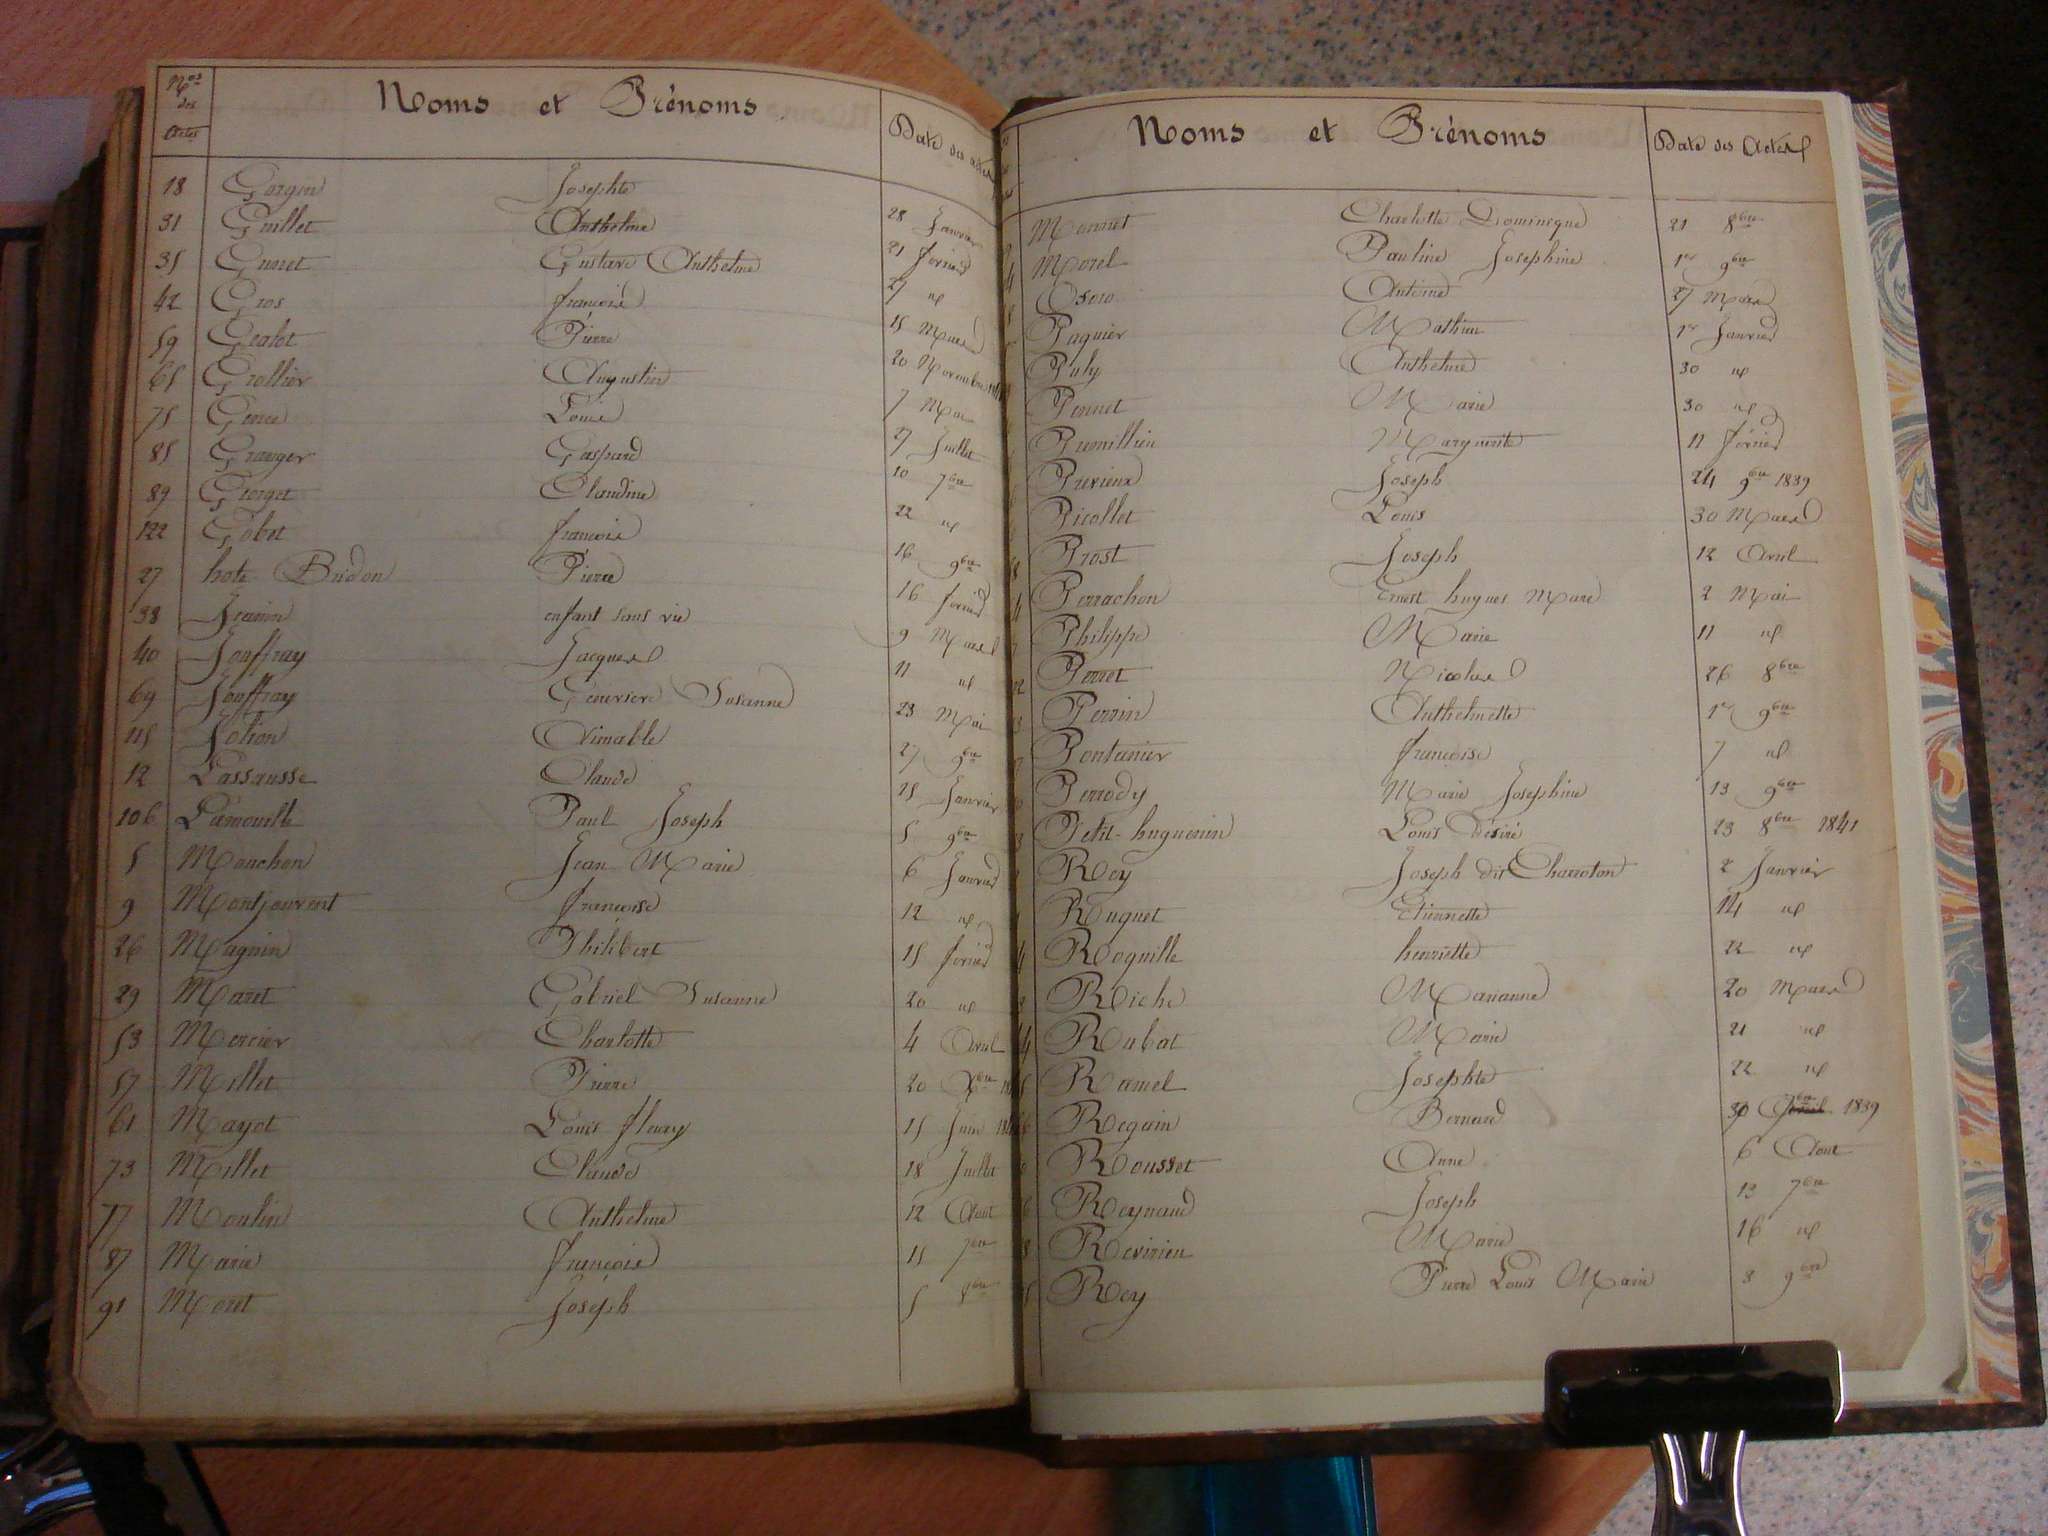 Nos des Actes Noms et Prénoms Date des actes
18 Gorgin Josephte 28 Janvier
31 Guillet Anthelme 21 février
35 Gunet Gustave Anthelme 27 id
42 Gros françois 15 Mars
59 Gealet Pierre 20 Novembre
65 Grollier Augustin 7 Mai
75 Gonce Louise 27 Juillet
85 Granger Gaspard 10 7bre
89 Giorget Claudine 22 id
122 Gobet françois 16 9bre
27 hote Bridon Pierre 16 février
38 Jeanin enfant sans vie 9 Mars
40 Jouffray Jacques 11 id
69 Jouffray Susanne 23 Mai
115 Jolion Aimable 27 9bre
12 Lassausse Claude 15 Janvier
106 Lamouille Paul Joseph 5 9bre
5 Monchon Jean Marie 6 Janvier
9 Montjouvent françoise 12 id
26 Magnin Philibert 15 février
29 Maret Gabriel Susanne 20 id
53 Mercier Charlotte 4 Avril
57 Millet Pierre 20 Xbre
61 Mayot Louis fleury 15 Juin
73 Millet Claude 18 Juillet
77 Moulin Anthelme 12 Aout
87 Marie françois 15 7bre
91 Moret Joseph 5 8bre
Noms et Prénoms Date des Actes
Monnet Charlotte Dominique 21 8bre
Morel Pauline Josephine 1er 9bre
Osoro Antoine 27 Mars
Paquier Mathieu 1er Janvier
Puly Anthelme 30 id
Pennet Marie 30 id
Prumillieu Marguerite 11 février
Previeux Joseph 24 9bre 1839
Picollet Louis 30 Mars
Prost Joseph 12 Avril
Perrachon Ernest hugues Marc 2 Mai
Philippe Marie 11 id
Perret Nicolas 26 8bre
Perrin Anthelmette 1er 9bre
Pontanier françoise 7 id
Perrody Marie Josephine 13 9bre
Petit-huguenin Louis Désiré 23 8bre 1841
Rey Joseph dit Charroton 2 Janvier
Ruguet Etiennette 14 id
Roquille henriette 22 id
Riche Marianne 20 Mars
Rubat Marie 21 id
Ramel Josephte 22 id
Regain Bernard 30 7bre 1839
Rousset Anne 6 Aout
Reynaud Joseph 13 7bre
Revirieu Marie 16 id
Rey Pierre Louis Marie 3 9bre